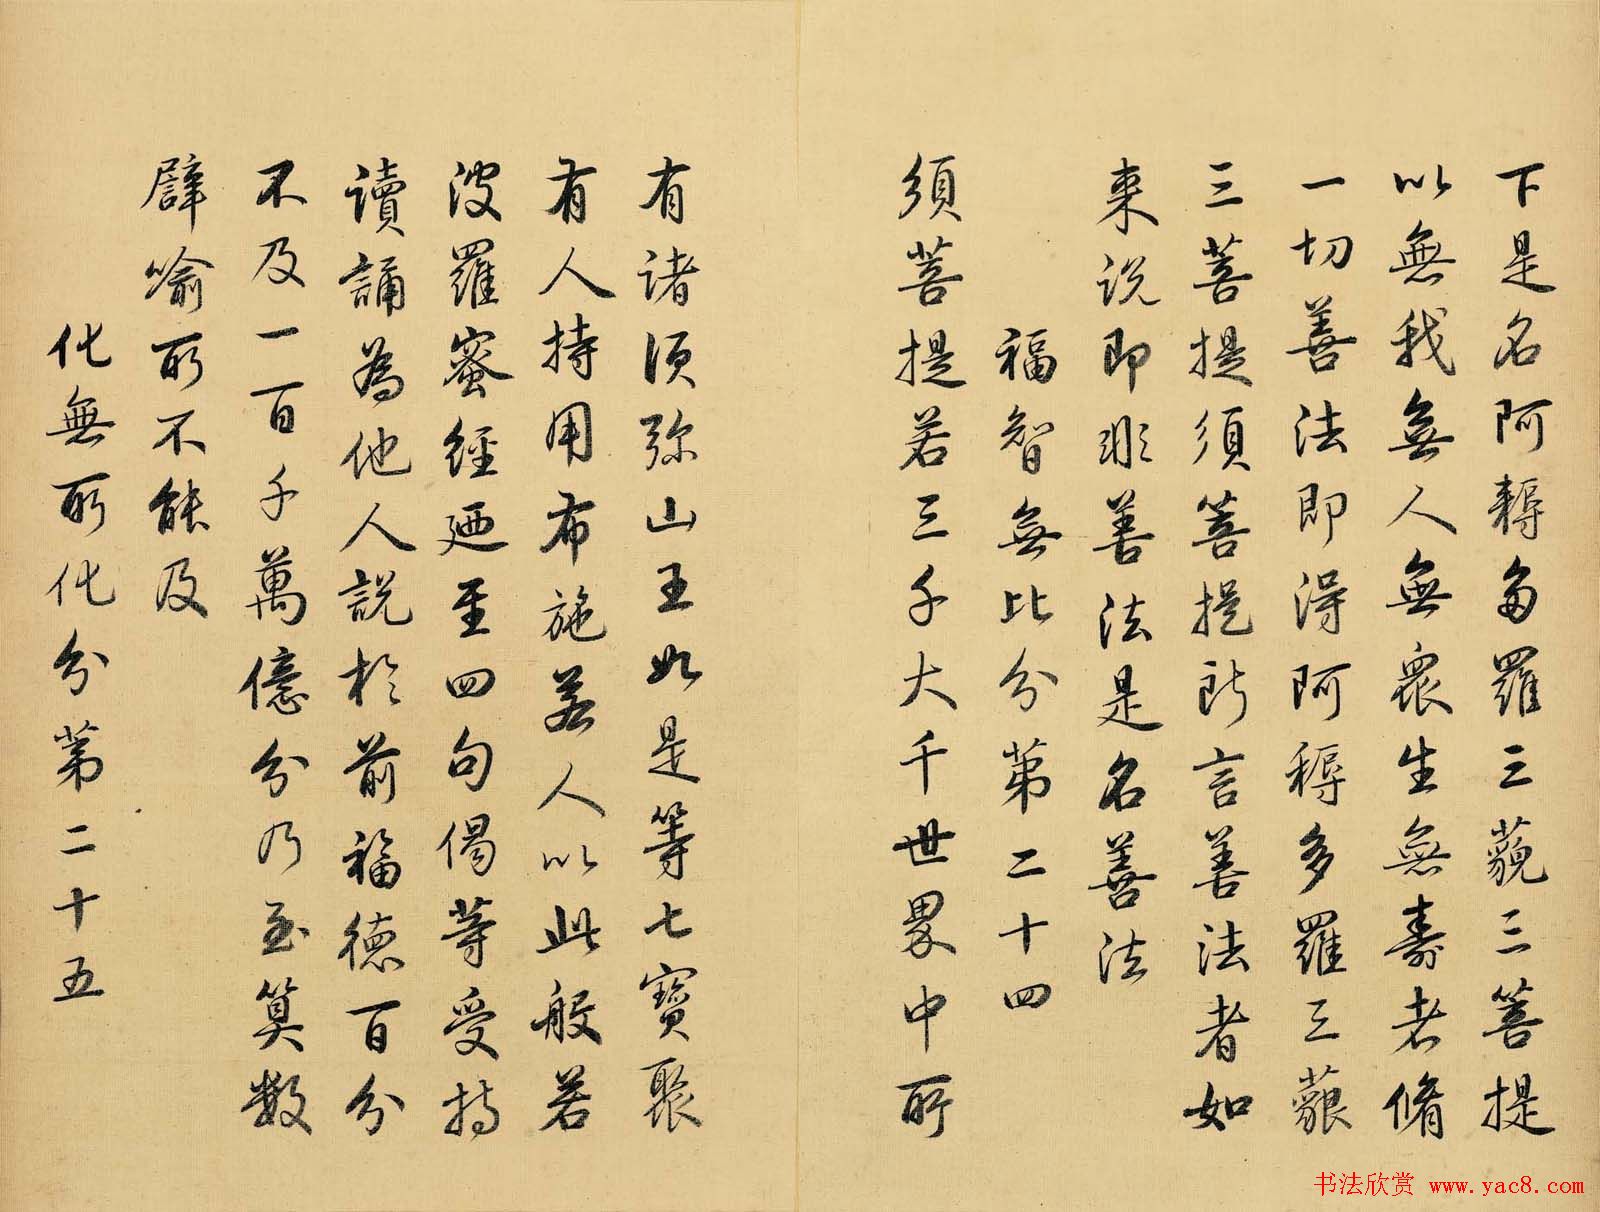 下是名阿耨多羅三藐三菩提
以無我無人無眾生無壽者脩
一切善法即得阿耨多羅三藐
三菩提須菩提所言善法者如
来说即非善法是名善法
福智無比分第二十四
須菩提若三千大千世界中所
有诸须弥山王如是等七寶聚
有人持用布施若人以此般若
波羅蜜經廼至四句偈等受持
讀誦為他人説於前福德百分
不及一百千萬億分乃至算數
譬喻所不能及
化無所化分第二十五
书法欣赏 www.yac8.com